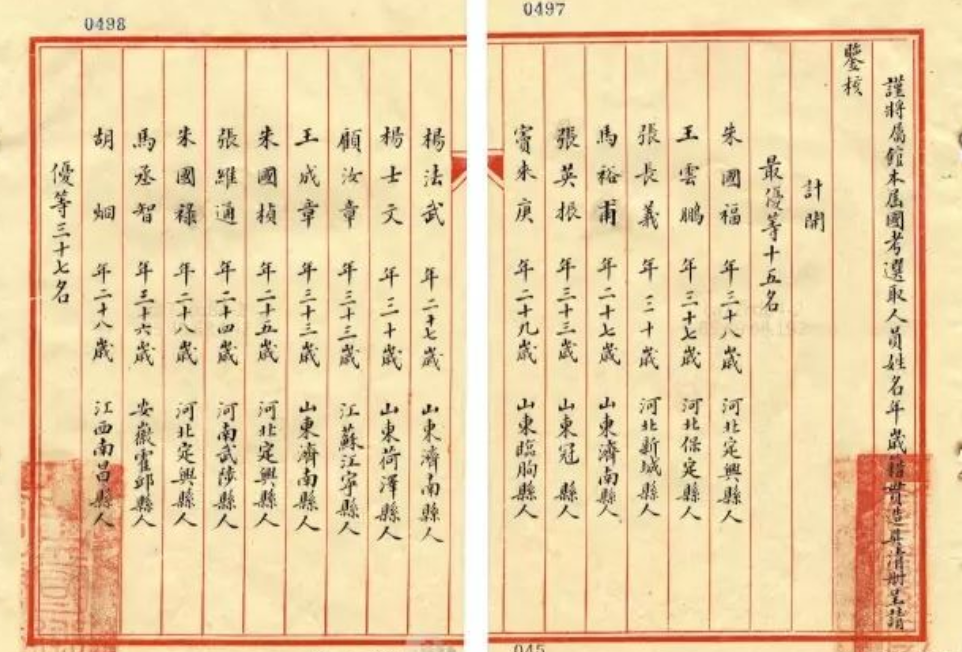 0497
謹將屬館本屆國考選取人員姓名年歲籍貫造具清册呈請
鑒核
計開
最優等十五名
朱國福 年三十八歲 河北定興縣人
王雲鵬 年三十七歲 河北保定縣人
張長義 年二十歲 河北新城縣人
馬裕甫 年二十七歲 山東濟南縣人
張英振 年三十三歲 山東冠縣人
竇來庚 年二十九歲 山東臨朐縣人
045
0498
楊法武 年二十七歲 山東濟南縣人
楊士文 年二十歲 山東荷澤縣人
顧汝章 年三十三歲 江蘇江寧縣人
王成章 年三十三歲 山東濟南縣人
朱國楨 年二十五歲 河北定興縣人
張維通 年二十四歲 河南武陟縣人
朱國祿 年二十八歲 河北定興縣人
馬丞智 年三十六歲 安徽霍邱縣人
胡烱 年二十八歲 江西南昌縣人
優等三十七名